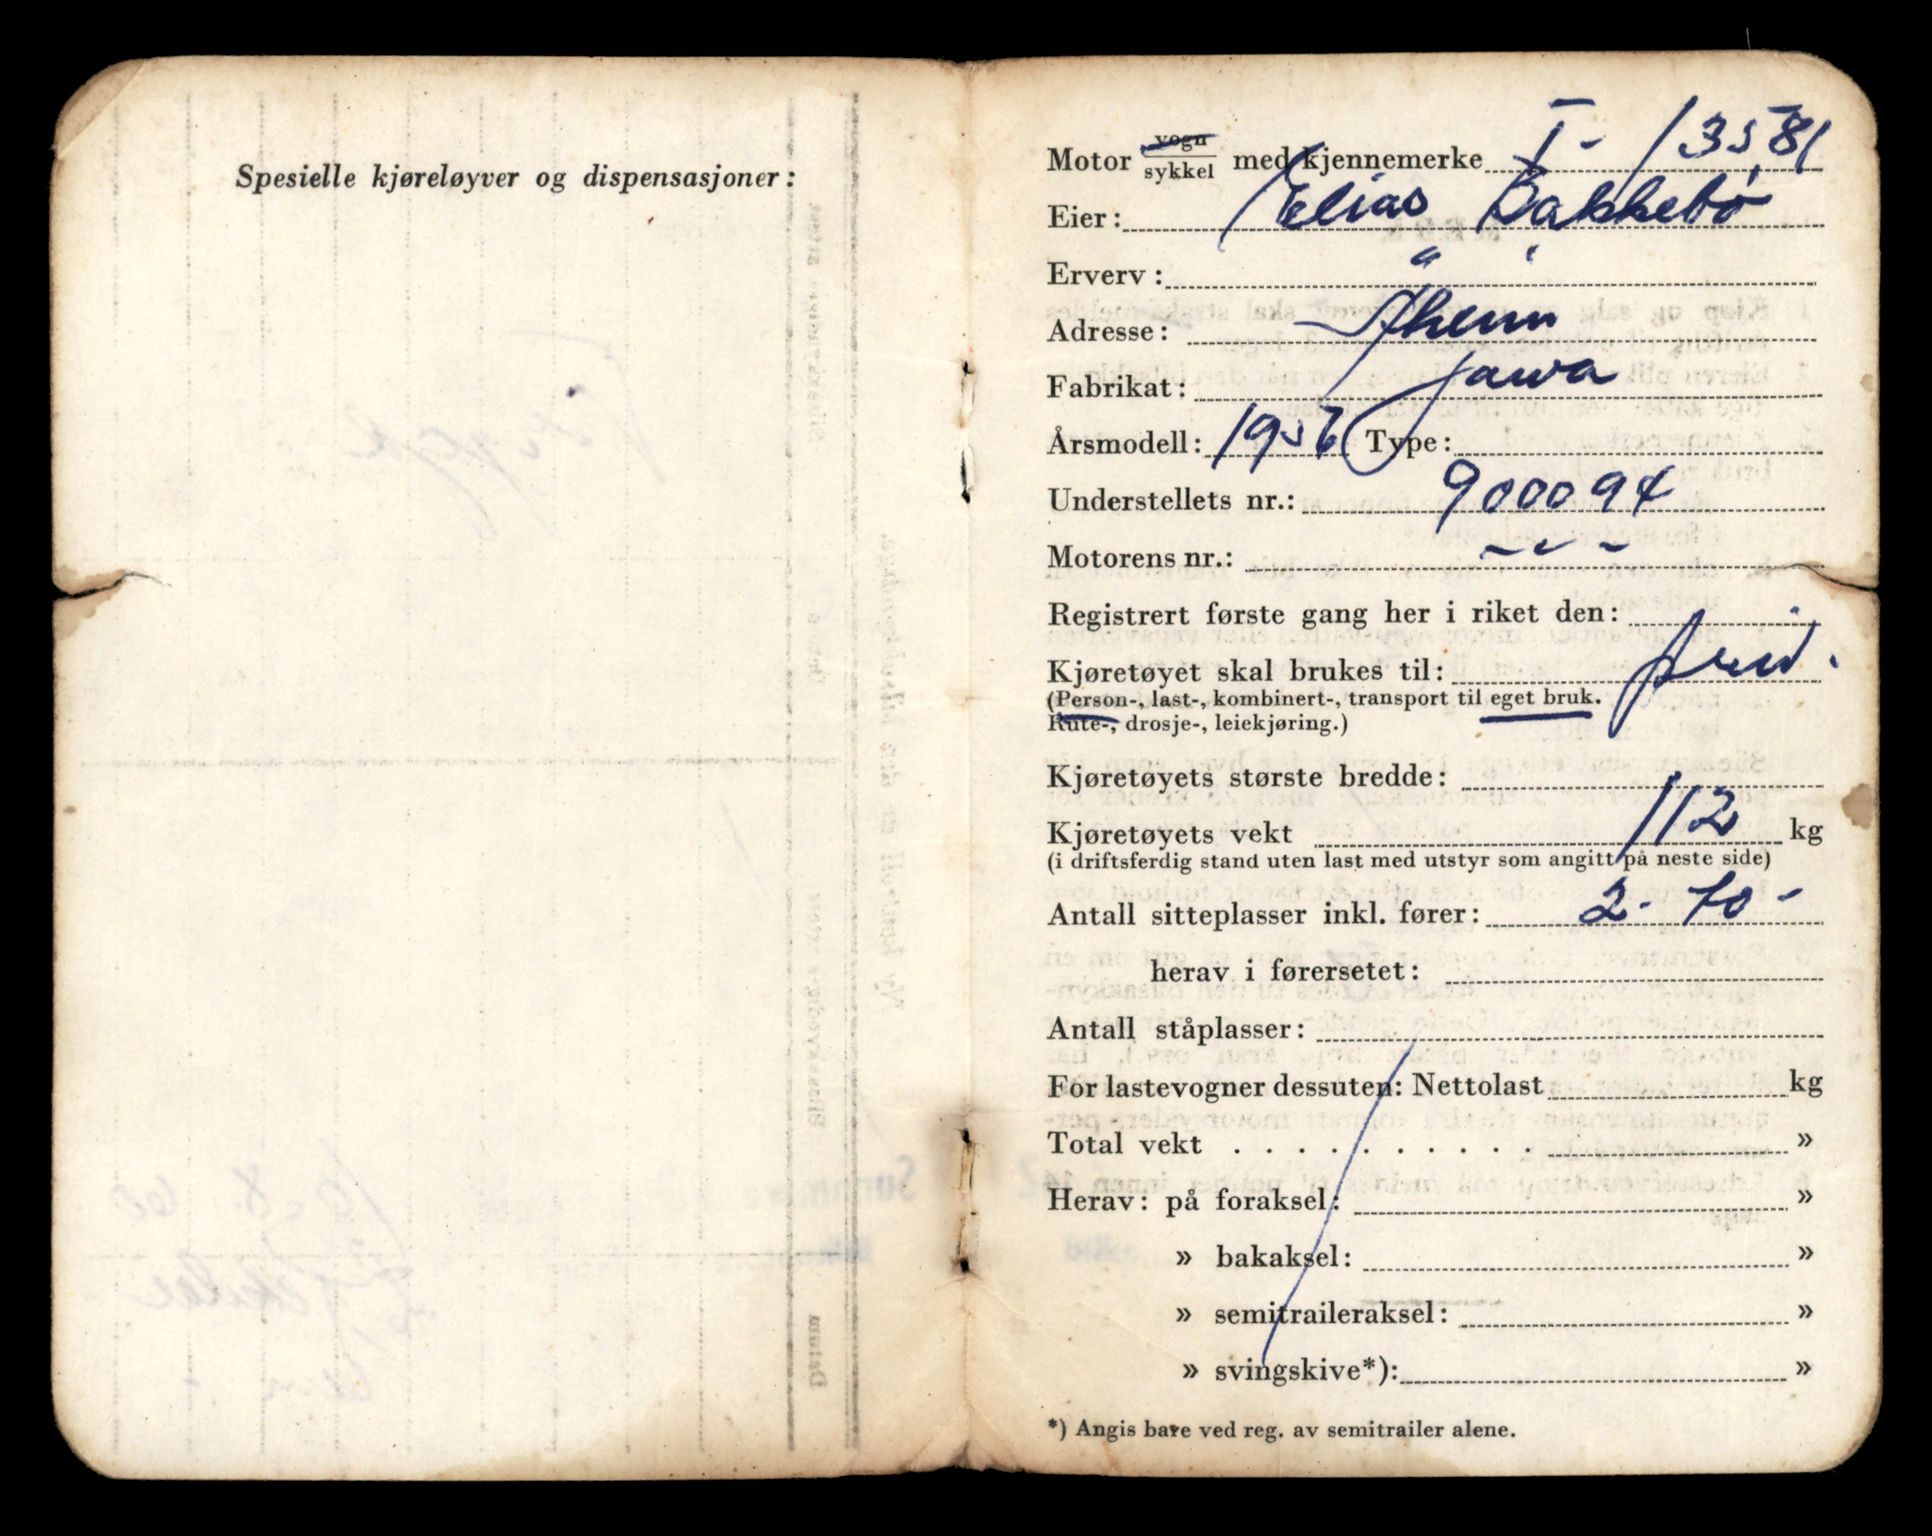 Spesielle kjøreløyver og dispensasjoner:
Motor vogn/sykkel med kjennemerke T- 13581
Eier: Elias Bakkebø
Erverv: " "
Adresse: Åheim
Fabrikat: Jawa
Årsmodell: 1956 Type:
Understellets nr.: 900094
Motorens nr.: — " —
Registrert første gang her i riket den:
Kjøretøyet skal brukes til:
(Person-, last-, kombinert-, transport til eget bruk.
Rute-, drosje-, leiekjøring.)
Kjøretøyets største bredde:
Kjøretøyets vekt 112 kg
(i driftsferdig stand uten last med utstyr som angitt på neste side)
Antall sitteplasser inkl. fører: 2- to -
herav i førersetet:
Antall ståplasser:
For lastevogner dessuten: Nettolast kg
Total vekt . . . . . . . . . . »
Herav: på foraksel: »
» bakaksel: »
» semitraileraksel: »
» svingskive*): »
*) Angis bare ved reg. av semitrailer alene.